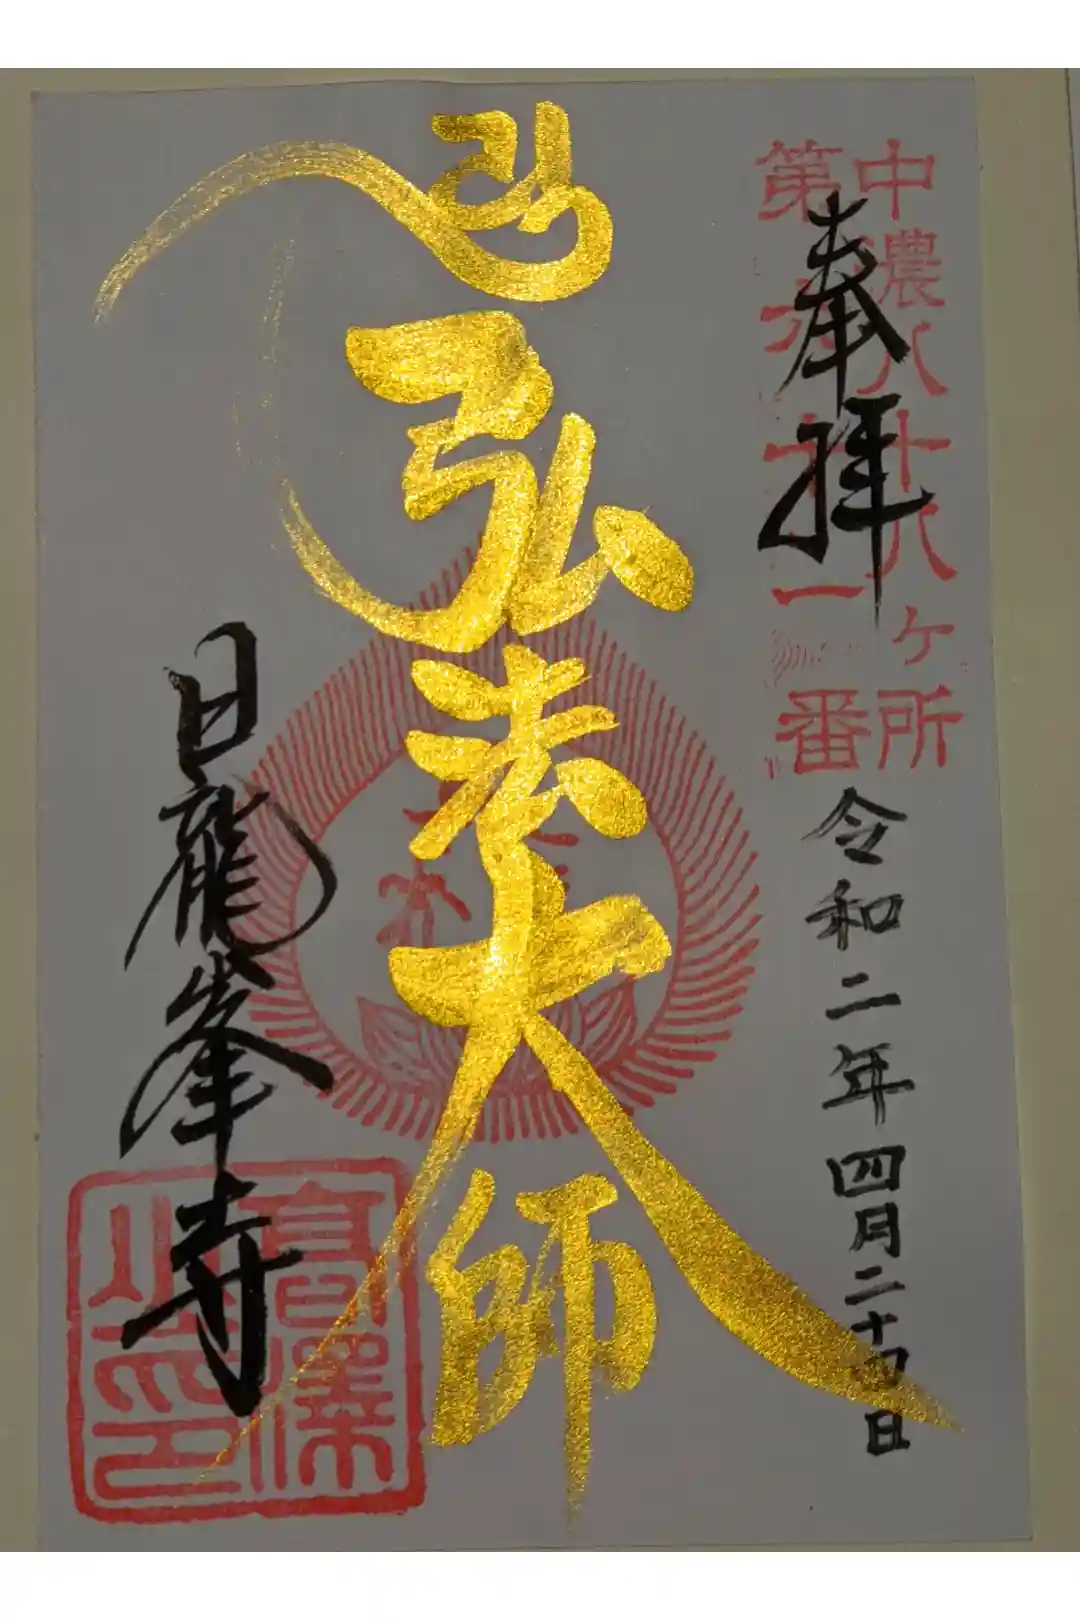 中濃八十八ヶ所
第六十一番
奉拝
令和二年四月二十四日
弘法大師
日龍峯寺
高澤
之印